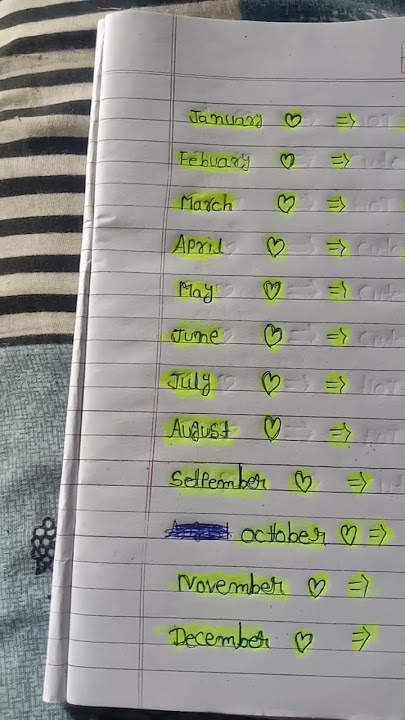 January ♡ ⇒
Febuary ♡ ⇒
March ♡ ⇒
April ♡ ⇒
May ♡ ⇒
June ♡ ⇒
July ♡ ⇒
August ♡ ⇒
Seltember ♡ ⇒
october ♡ ⇒
November ♡ ⇒
December ♡ ⇒